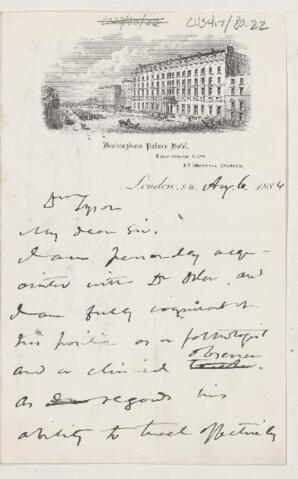 1028/80/22
CUS417/80.22
Buckingham Palace Hotel,
BUCKINGHAM GATE,
Nr VICTORIA STATION.
London, S.W. Aug 6 1884
Dr Tyson
My dear Sir.
I am personally acqu-
ainted with Dr Osler, and
I am fully cognizant of
his position as a pathologist
observer
and a clinical teacher.
As regards his
ability to teach effectively